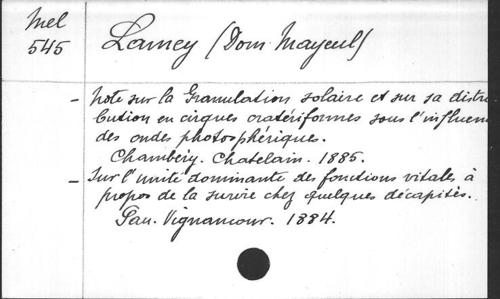 Mel
545
Lamey (Dom Mayeul)
- Note sur la Granulation solaire et sur sa distri
bution en cirques cratériformes sous l'influen
des ondes photosphériques.
Chambéry. Chatelain. 1885.
- Sur l'unité dominante des fonctions vitales à
propos de la survie chez quelques décapités.
Pau. Vignancour. 1884.